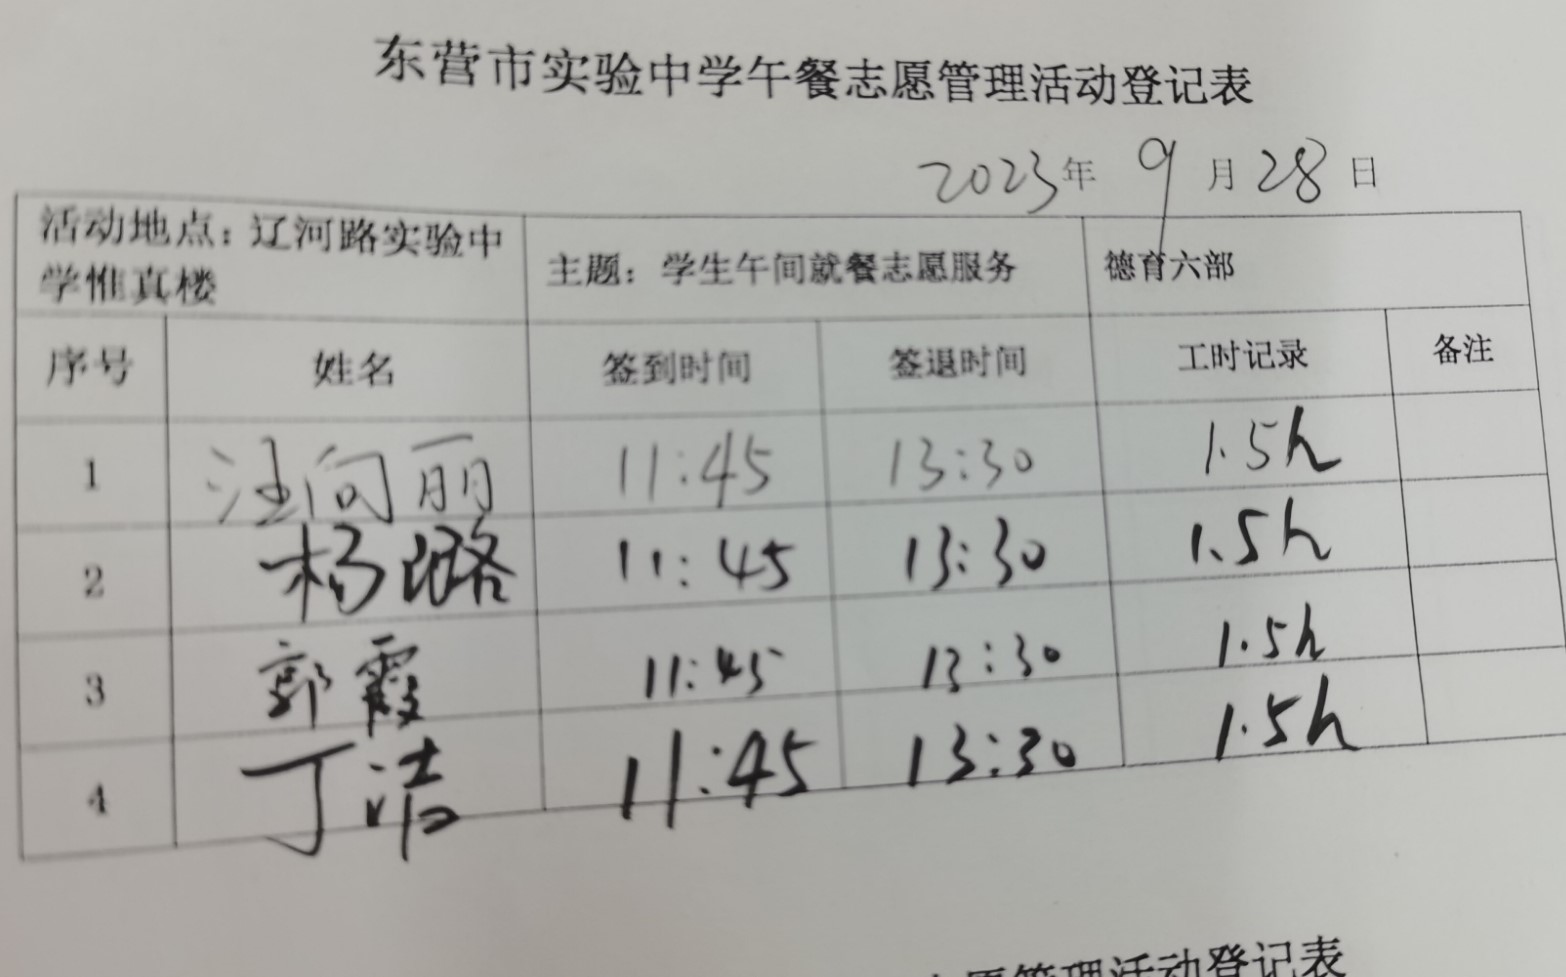 东营市实验中学午餐志愿管理活动登记表
2023年 9月28日
活动地点：辽河路实验中
学惟真楼
主题：学生午间就餐志愿服务
德育六部
序号 姓名 签到时间 签退时间 工时记录 备注
1 汪向丽 11:45 13:30 1.5h
2 杨璐 11:45 13:30 1.5h
3 郭霞 11:45 13:30 1.5h
4 丁洁 11:45 13:30 1.5h
愿管理活动登记表